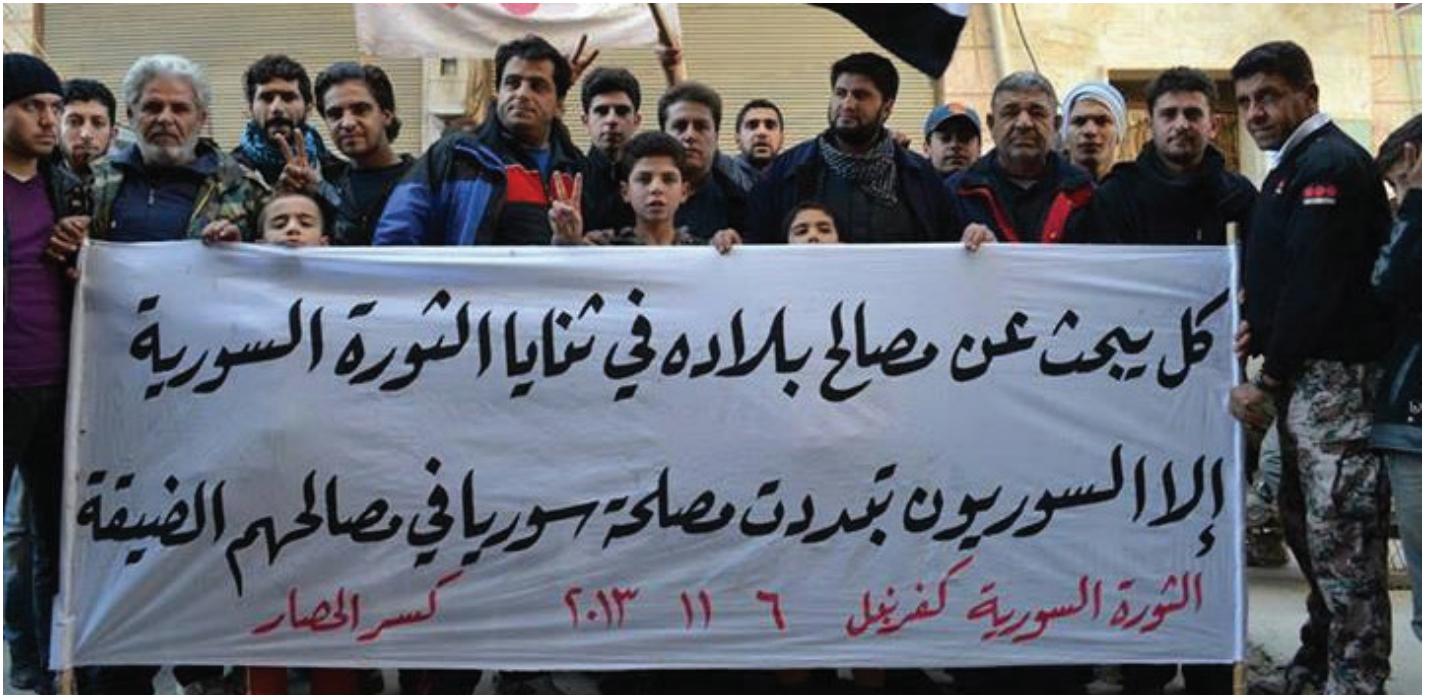 كل يبحث عن مصالح بلاده في ثنايا الثورة السورية
إلا السوريون تبددت مصلحة سوريا في مصالحهم الضيقة
الثورة السورية كفرنبل ٦ ١١ ٢٠١٣ كسر الحصار